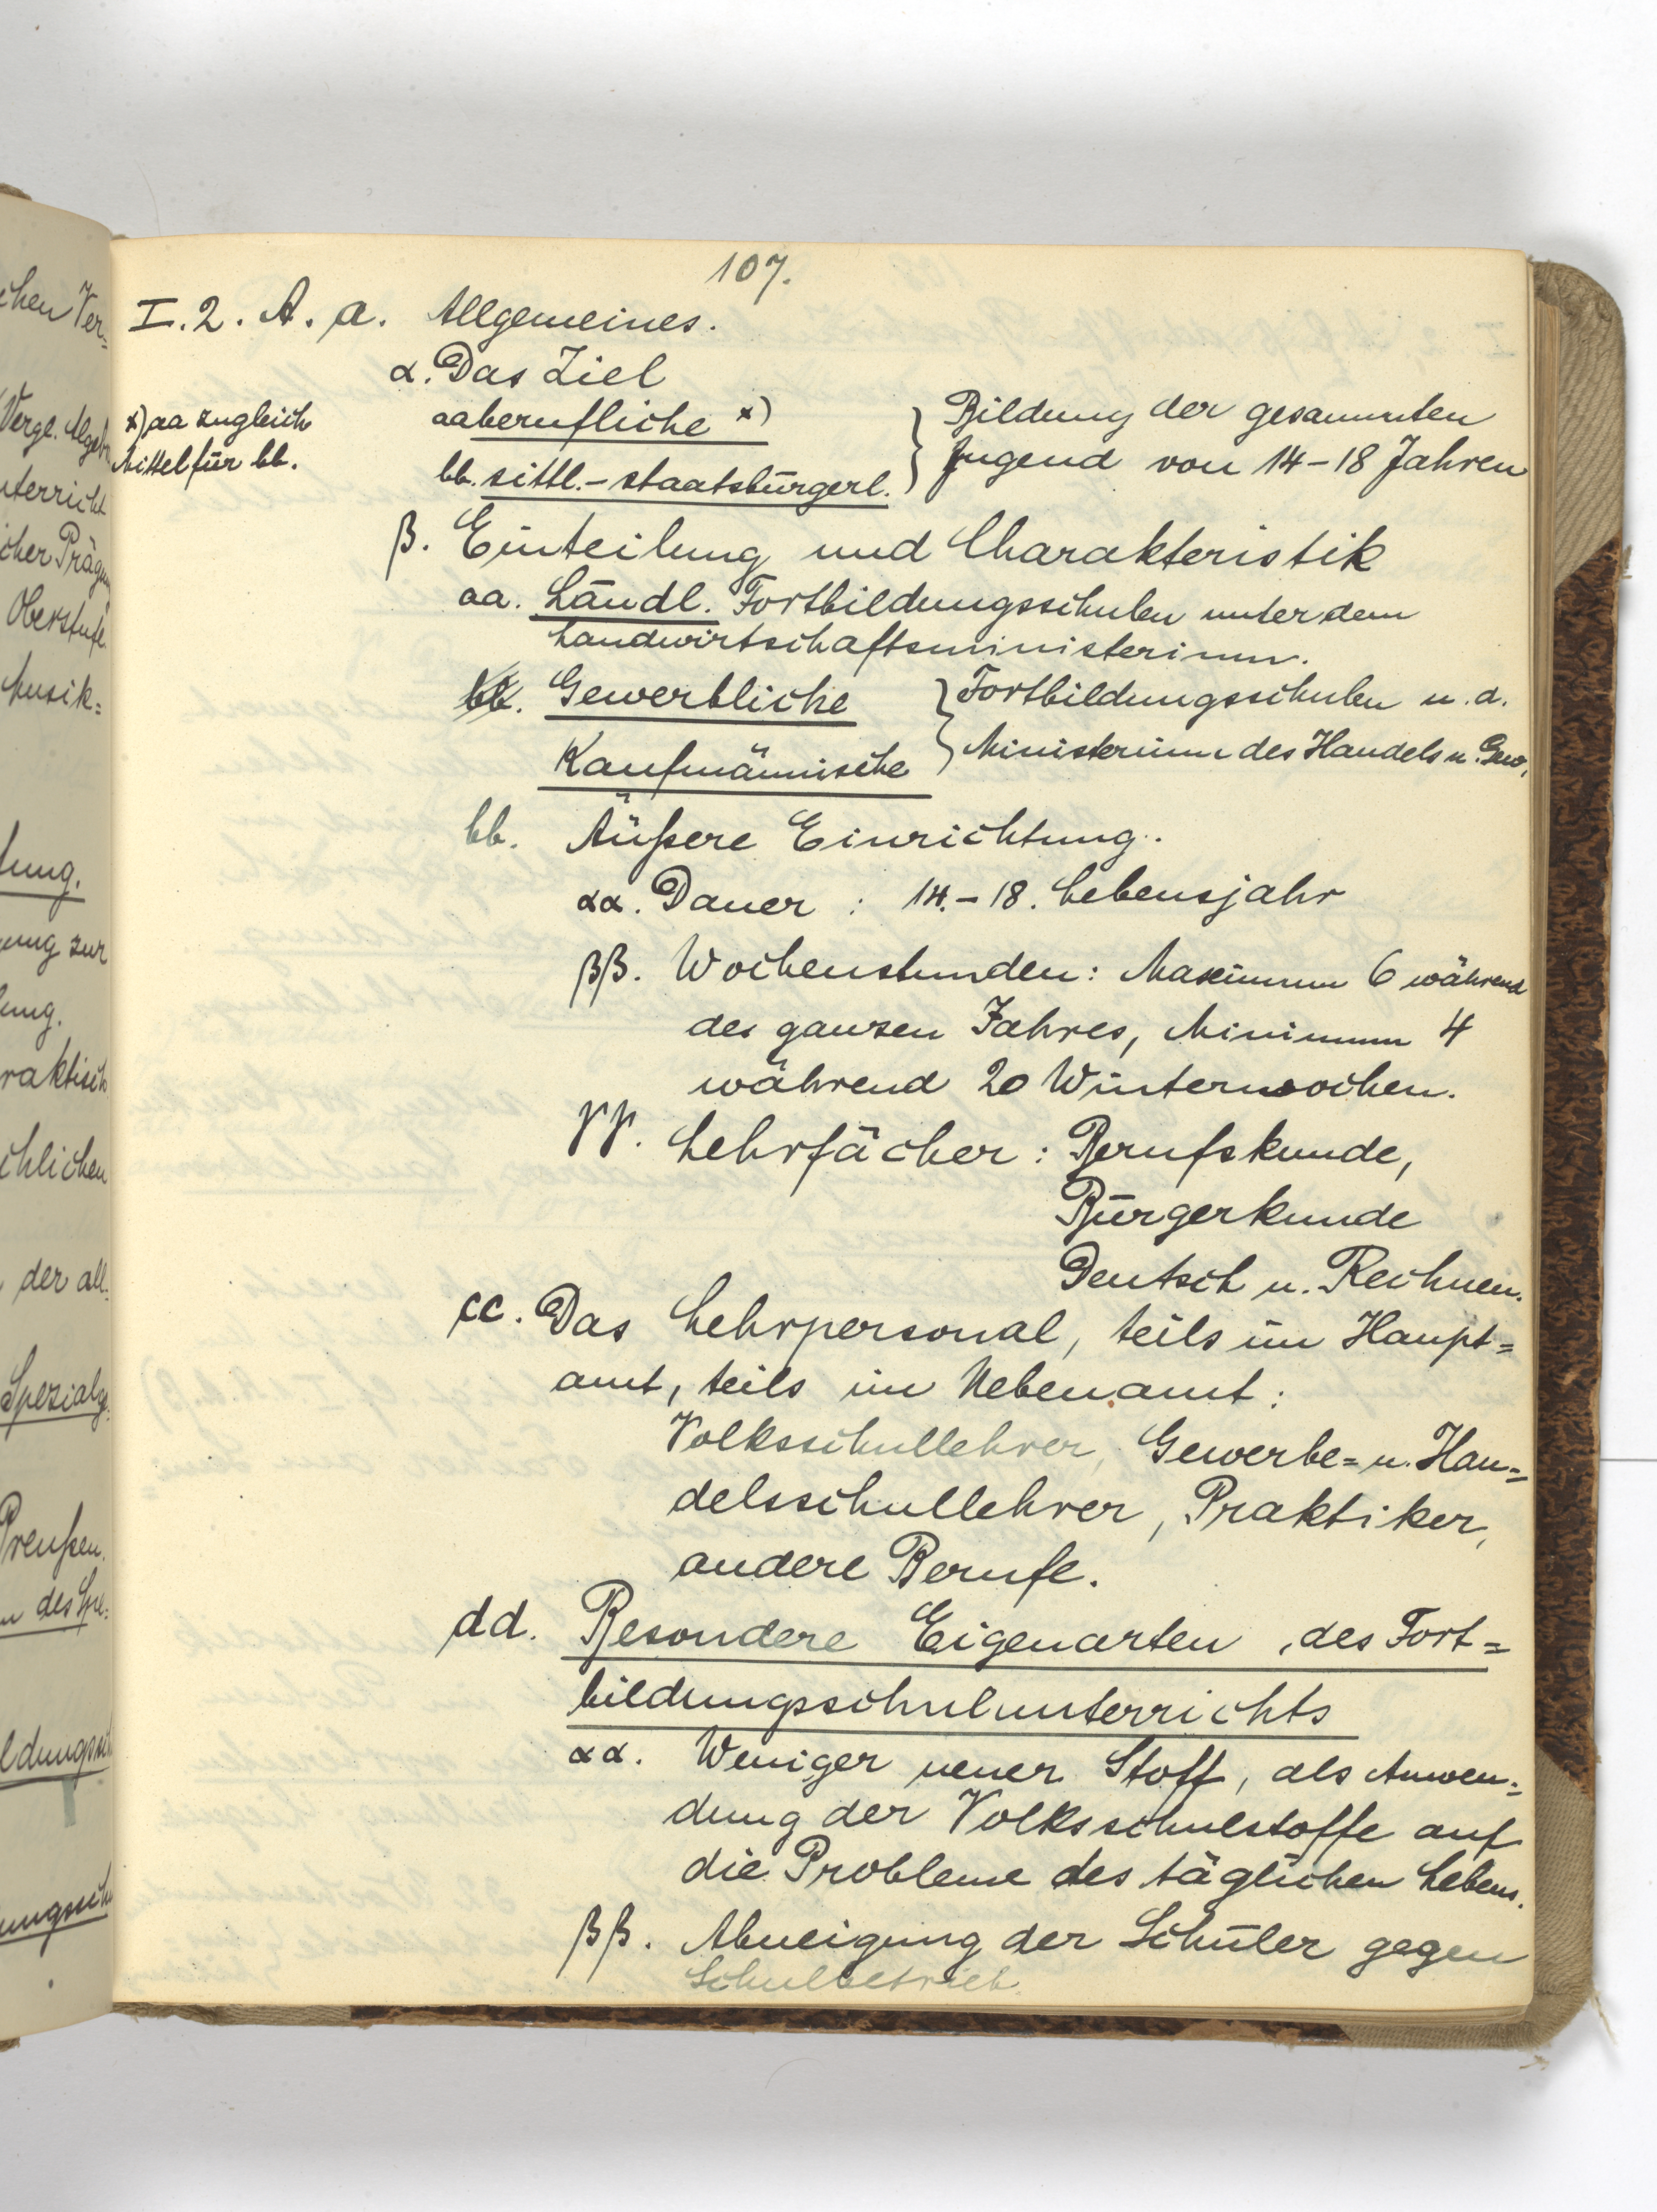 chen Ver-
Vergl.
nterricht
icher Prägun
Oberstufe
Musik=
tung.
ung zur
lung.
raktisch
chlichen
der all.
Spezialg.
Preußen.
des
ldungssch
ungssch
107.
I. 2. A. a. Allgemeines.
α. Das Ziel
x) aa zugleich
Mittel für bb.
aa berufliche x) } Bildung der gesammten
bb. sittl.-staatsbürgerl. } Jugend von 14-18 Jahren
β. Einteilung und Charakteristik
aa. Ländl. Fortbildungsschulen unter dem
Landwirtschaftsministerium.
bb. Gewerbliche } Fortbildungsschulen u. d.
Kaufmännische } Ministerium des Handels u. Gew.
bb. Äußere Einrichtung.
αα. Dauer : 14.-18. Lebensjahr
ββ. Wochenstunden: Maximum 6 während
des ganzen Jahres, Minimum 4
während 20 Winterwochen.
γγ. Lehrfächer: Berufskunde,
Bürgerkunde
Deutsch u. Rechnen.
cc. Das Lehrpersonal, teils im Haupt=
amt, teils im Nebenamt:
Volksschullehrer, Gewerbe= u. Han=
delsschullehrer, Praktiker,
andere Berufe.
dd. Besondere Eigenarten des Fort=
bildungsschulunterrichts
αα. Weniger neuer Stoff, als Anwen=
dung der Volksschulstoffe auf
die Probleme des täglichen Lebens.
ββ. Abneigung der Schüler gegen
Schulbetrieb.